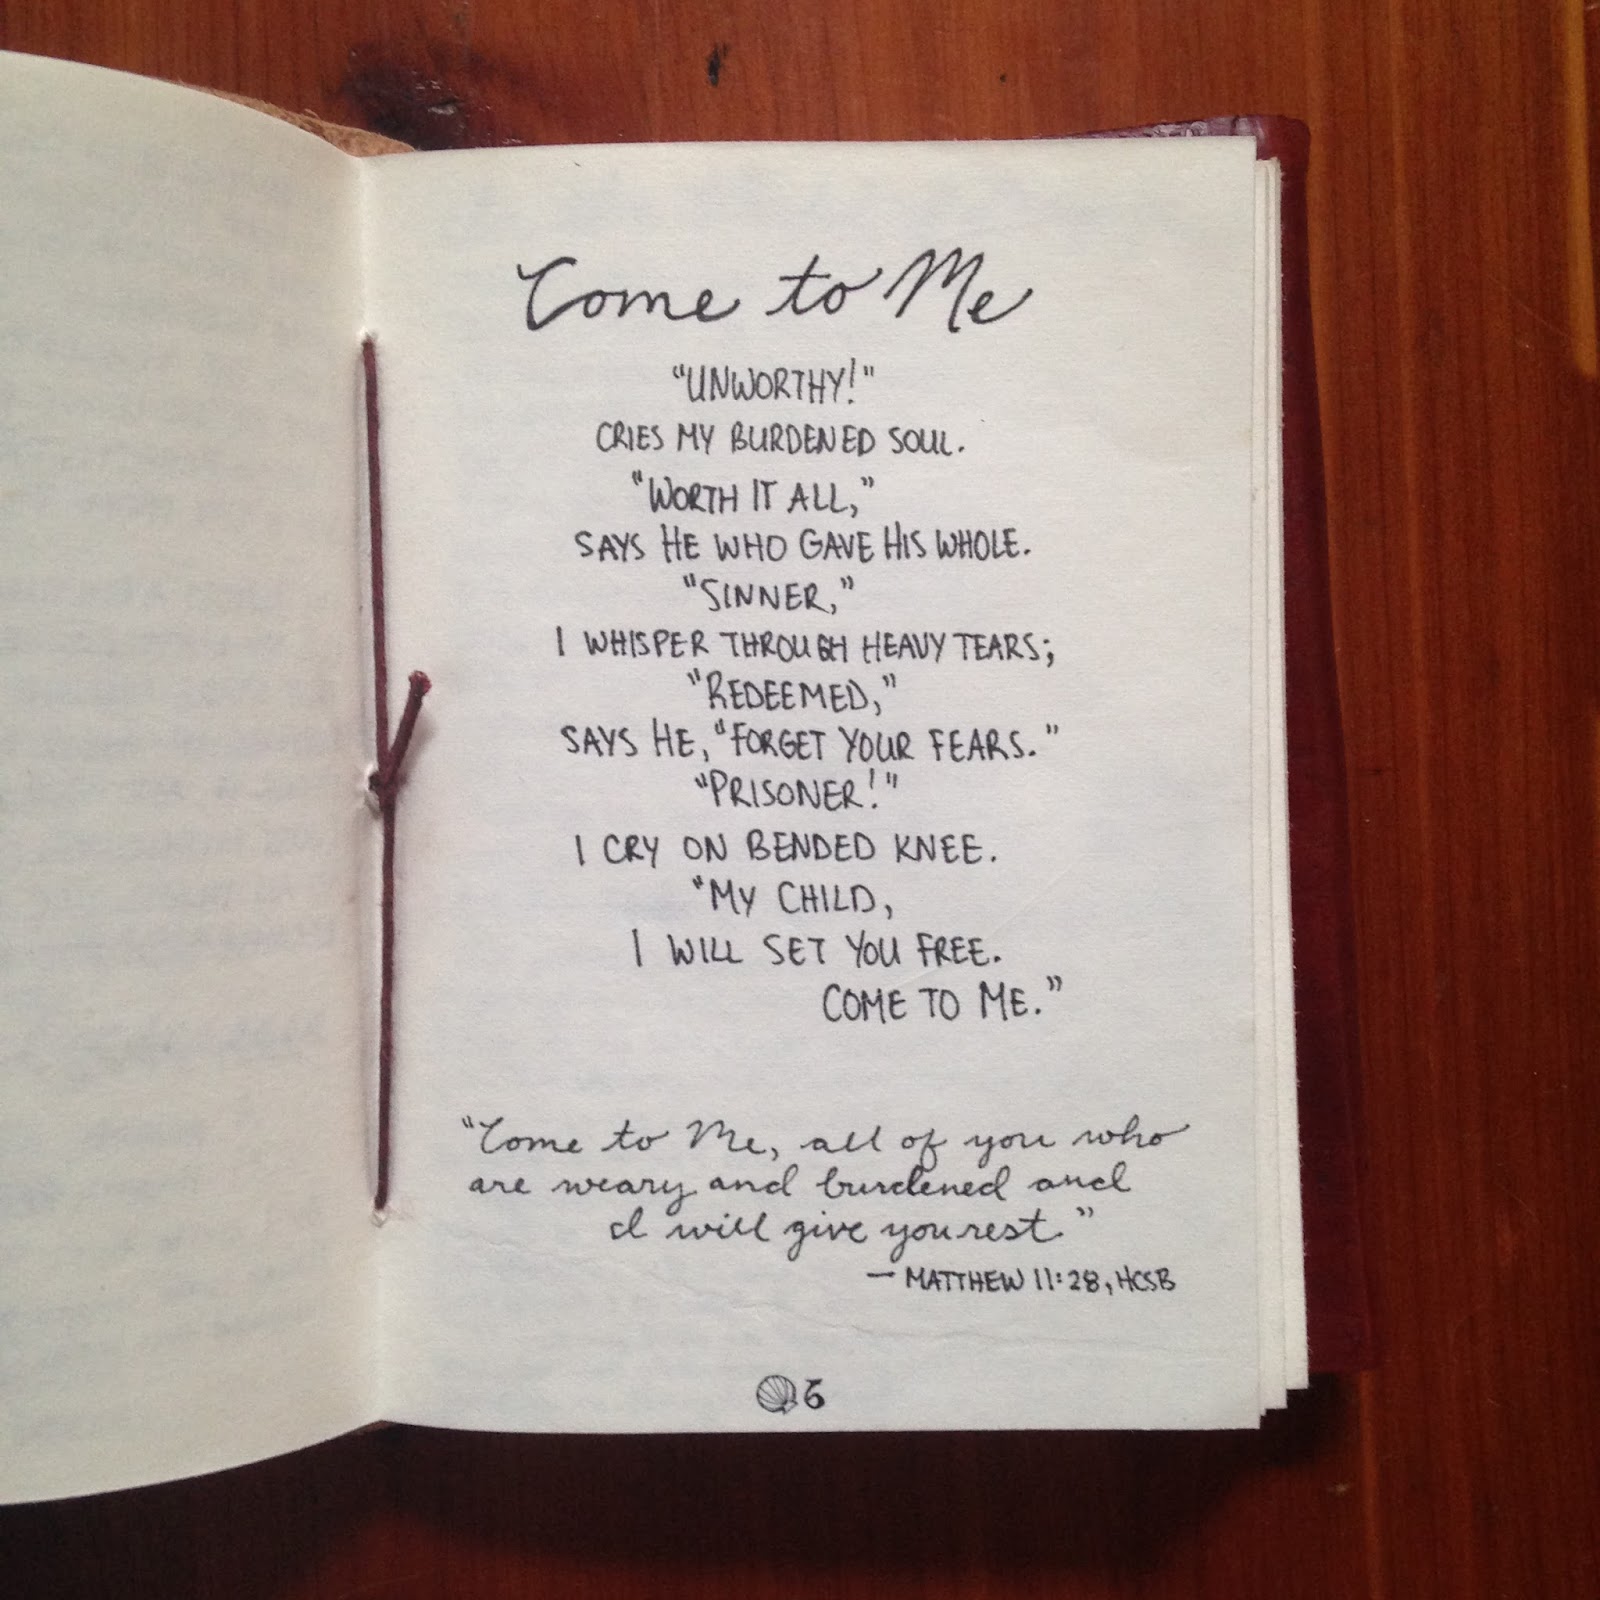 Come to Me
"UNWORTHY!"
CRIES MY BURDENED SOUL.
"WORTH IT ALL,"
SAYS HE WHO GAVE HIS WHOLE.
"SINNER,"
I WHISPER THROUGH HEAVY TEARS;
"REDEEMED,"
SAYS HE, "FORGET YOUR FEARS."
"PRISONER!"
I CRY ON BENDED KNEE.
"MY CHILD,
I WILL SET YOU FREE.
COME TO ME."
"Come to Me, all of you who
are weary and burdened and
I will give you rest."
— MATTHEW 11:28, HCSB
6